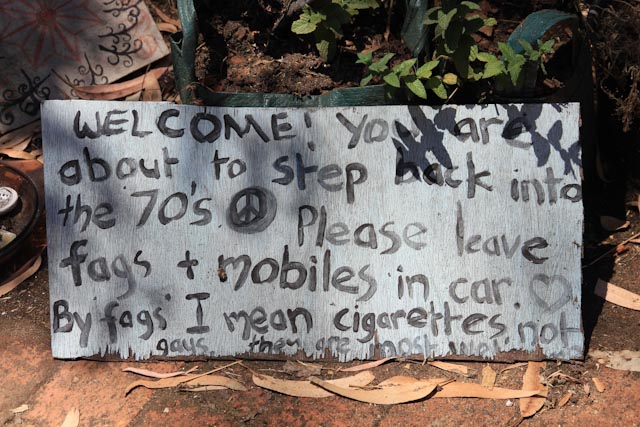 WELCOME! You are
about to step back into
the 70's Please leave
fags + mobiles in car.
By 'fags' I mean cigarettes, not
gays they are most wel